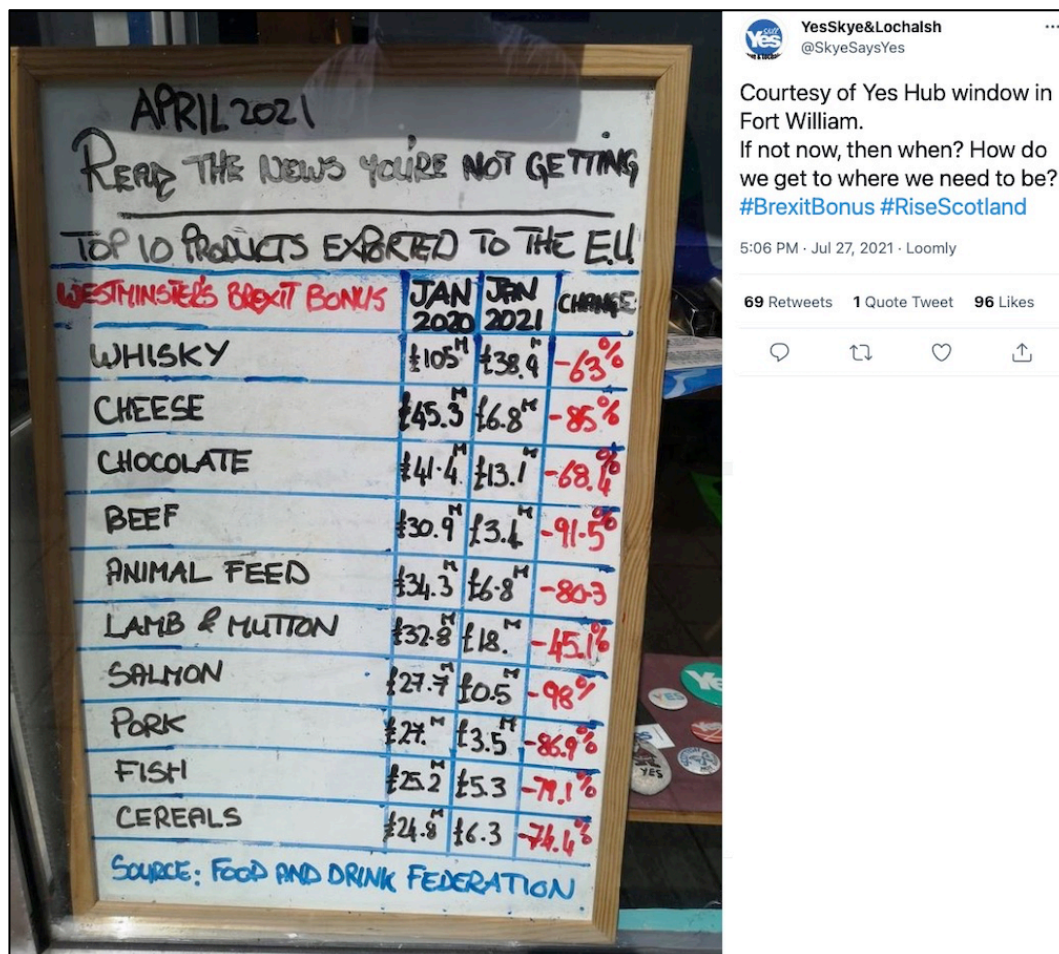 APRIL 2021
READ THE NEWS YOU'RE NOT GETTING
TOP 10 PRODUCTS EXPORTED TO THE E.U.
WESTMINSTER'S BREXIT BONUS JAN 2020 JAN 2021 CHANGE
WHISKY £105M £38.4M -63%
CHEESE £45.3M £6.8M -85%
CHOCOLATE £41.4M £13.1M -68.4%
BEEF £30.9M £3.1M -91.5%
ANIMAL FEED £34.3M £6.8M -80.3
LAMB & MUTTON £32.8M £18.M -45.1%
SALMON £27.7M £0.5M -98%
PORK £27.M £3.5M -86.9%
FISH £25.2M £5.3 -79.1%
CEREALS £24.8M £6.3 -74.4%
SOURCE: FOOD AND DRINK FEDERATION
YES
Ye
YES
Yes
YesSkye&Lochalsh
@SkyeSaysYes
Courtesy of Yes Hub window in
Fort William.
If not now, then when? How do
we get to where we need to be?
#BrexitBonus #RiseScotland
5:06 PM · Jul 27, 2021 · Loomly
69 Retweets 1 Quote Tweet 96 Likes